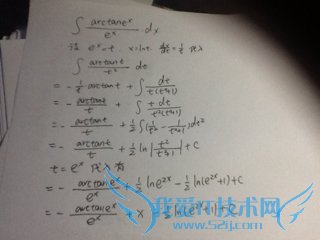 ∫ arctane^x / e^x dx
设 e^x=t. x=lnt. dx/dt=1/t 代入
∫ arctant / t² dt
= -1/t arctant + ∫ dt / t(t²+1)
= - arctant / t + ∫ t dt / t²(t²+1)
= - arctant / t + 1/2 ∫(1/t² - 1/(t²+1))dt²
= - arctant / t + 1/2 ln|t²/(t²+1)| + C
t=e^x 代入 有
= - arctane^x / e^x + 1/2 lne^2x - 1/2 ln(e^2x+1)+C
= - arctane^x / e^x + x - 1/2 ln(e^2x+1)+C
我爱学习网